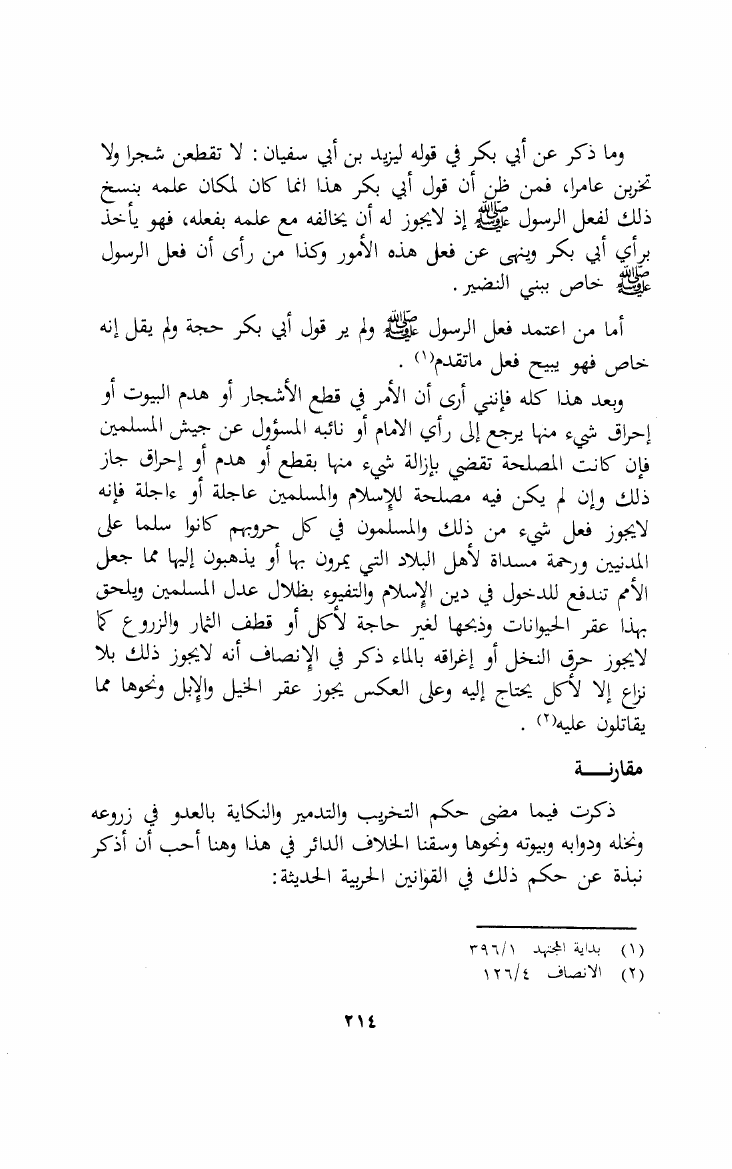 وما ذكر عن أبي بكر في قوله ليزيد بن أبي سفيان : لا تقطعن شجرا ولا
تخربن عامرا، فمن ظن أن قول أبي بكر هذا انما كان لمكان علمه بنسخ
ذلك لفعل الرسول ﷺ إذ لايجوز له أن يخالفه مع علمه بفعله، فهو يأخذ
برأي أبي بكر وينهى عن فعل هذه الأمور وكذا من رأى أن فعل الرسول
ﷺ خاص ببني النضير .
أما من اعتمد فعل الرسول ﷺ ولم ير قول أبي بكر حجة ولم يقل إنه
خاص فهو يبيح فعل ماتقدم(١) .
وبعد هذا كله فإنني أرى أن الأمر في قطع الأشجار أو هدم البيوت أو
إحراق شيء منها يرجع إلى رأي الامام أو نائبه المسؤول عن جيش المسلمين
فإن كانت المصلحة تقضي بإزالة شيء منها بقطع أو هدم أو إحراق جاز
ذلك وإن لم يكن فيه مصلحة للإسلام والمسلمين عاجلة أو ءاجلة فإنه
لايجوز فعل شيء من ذلك والمسلمون في كل حروبهم كانوا سلما على
المدنيين ورحمة مسداة لأهل البلاد التي يمرون بها أو يذهبون إليها مما جعل
الأمم تندفع للدخول في دين الإسلام والتفيوء بظلال عدل المسلمين ويلحق
بهذا عقر الحيوانات وذبحها لغير حاجة لأكل أو قطف الثمار والزروع كما
لايجوز حرق النخل أو إغراقه بالماء ذكر في الإنصاف أنه لايجوز ذلك بلا
نزاع إلا لأكل يحتاج إليه وعلى العكس يجوز عقر الخيل والإبل ونحوها مما
يقاتلون عليه(٢) .
مقارنـــة
ذكرت فيما مضى حكم التخريب والتدمير والنكاية بالعدو في زروعه
ونخله ودوابه وبيوته ونحوها وسقنا الخلاف الدائر في هذا وهنا أحب أن أذكر
نبذة عن حكم ذلك في القوانين الحربية الحديثة:
(١) بداية المجتهد ٣٩٦/١
(٢) الانصاف ١٢٦/٤
٢١٤